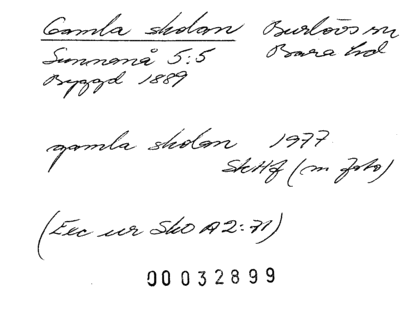 Gamla skolan Burlövs sn
Sunnanå 5:5 Bara hd
Byggd 1889
gamla skolan 1977
SkHf (m foto)
(Exc ur SkO A2:71)
00032899